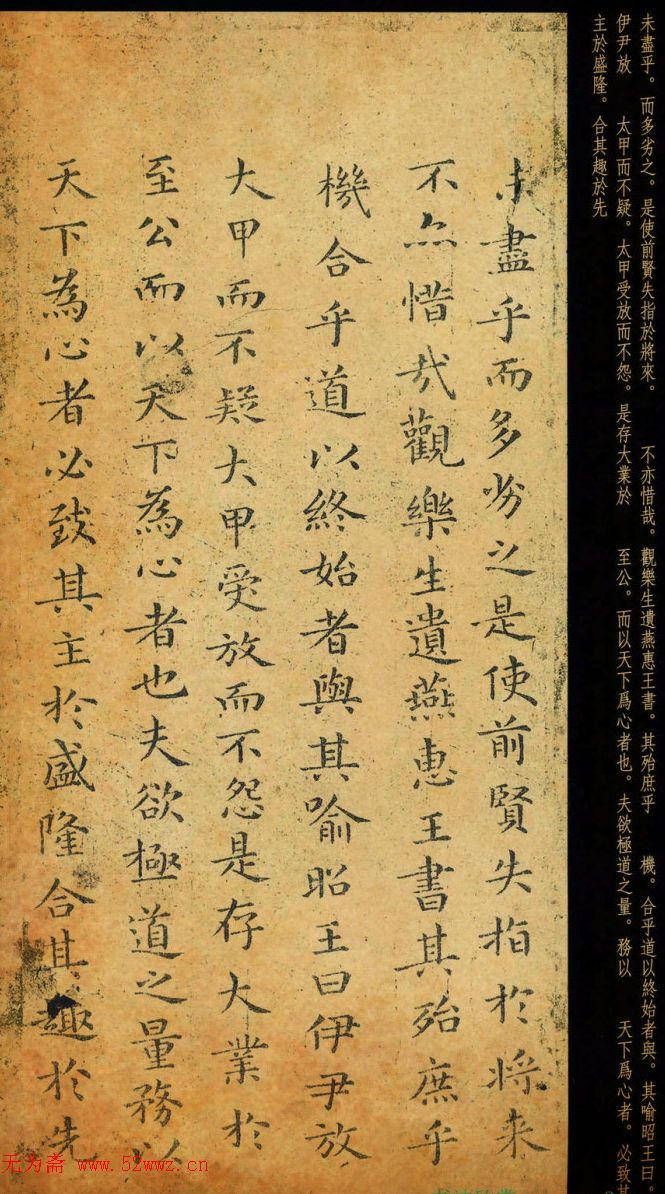 未盡乎而多劣之是使前賢失指於将来
不亦惜哉觀樂生遺燕惠王書其殆庶乎
機合乎道以終始者與其喻昭王曰伊尹放
大甲而不疑大甲受放而不怨是存大業於
至公而以天下為心者也夫欲極道之量務以
天下為心者必致其主於盛隆合其趣於先
未盡乎。而多劣之。是使前賢失指於將來。 不亦惜哉。觀樂生遺燕惠王書。其殆庶乎 機。合乎道以終始者與。其喻昭王曰。
伊尹放 太甲而不疑。太甲受放而不怨。是存大業於 至公。而以天下爲心者也。夫欲極道之量。務以 天下爲心者。必致其
主於盛隆。合其趣於先
无为斋 www.52wwz.cn